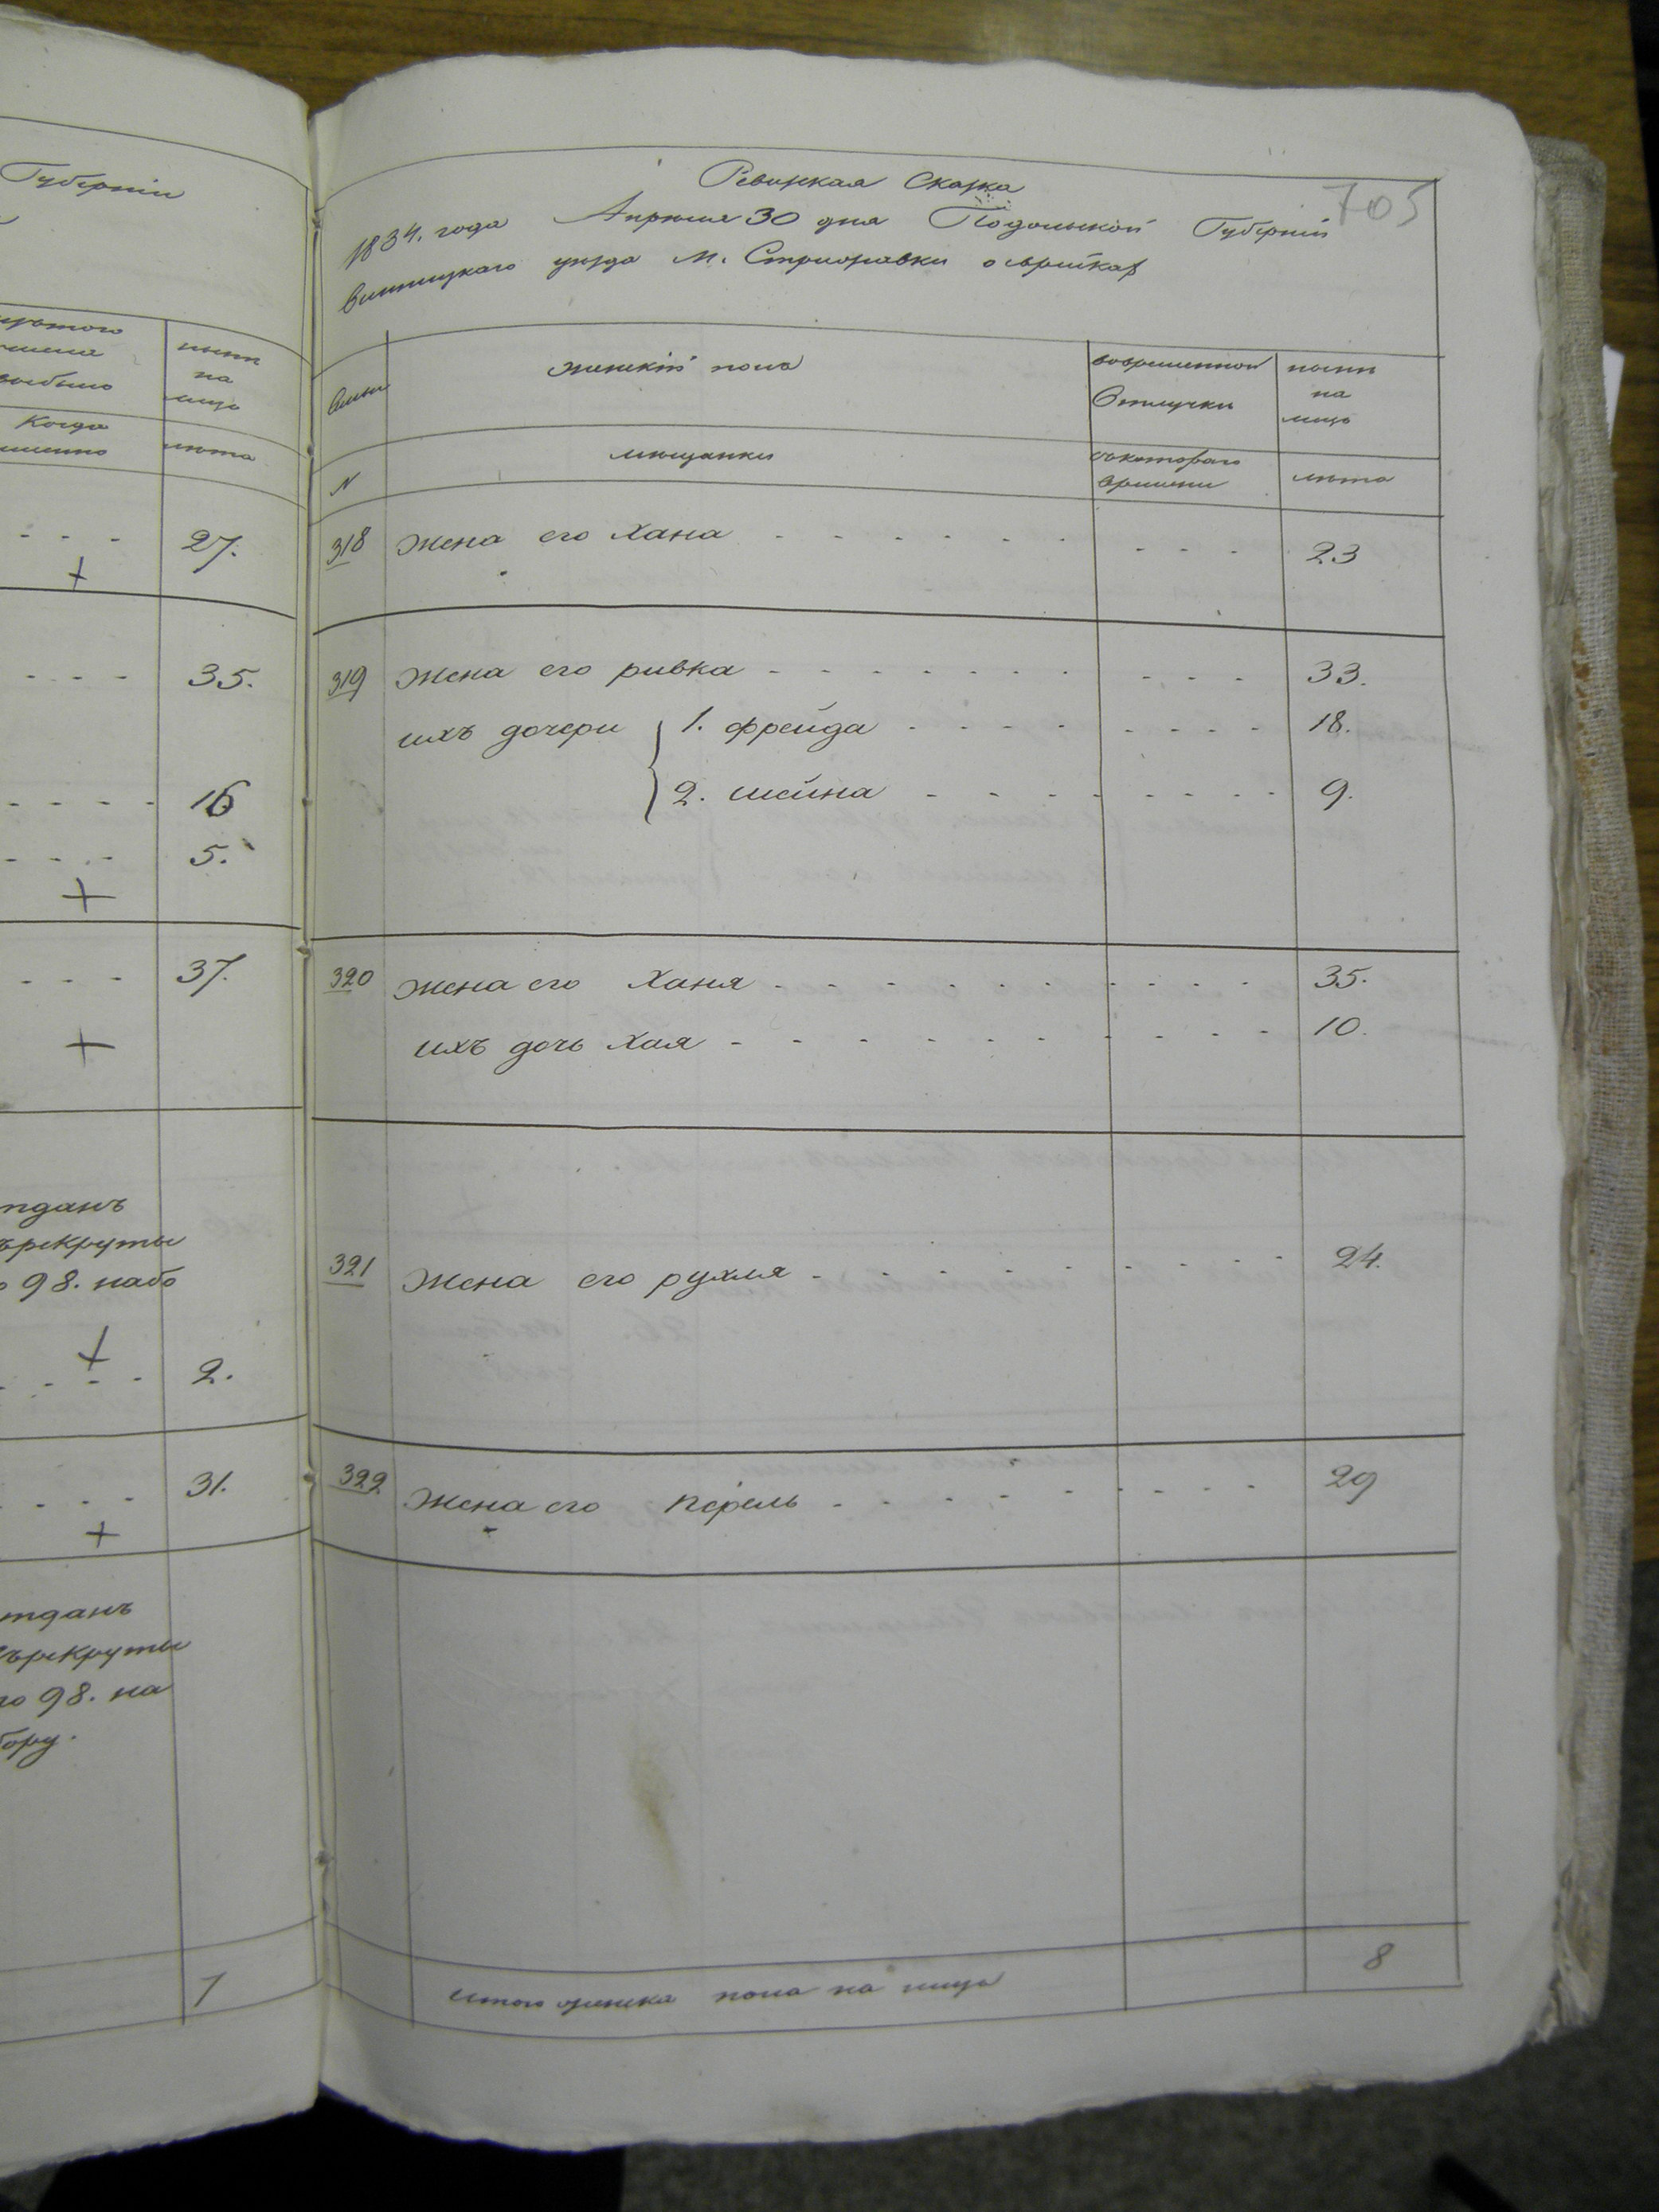 Губерніи
ныни
на
лицо
Когда
имянно
лета
27.
35.
16
5.
37.
отданъ
въ рекруты
98. набо
2.
31.
отданъ
въ рекруты
98. на
бору.
7
705
Ревизская Сказка
1834. года Апреля 30 дня Подольской Губерніи
Винницкаго уезда М. Стрижавки о еврейкахъ
Семьи
женскій полъ
во временной
Отлучки
ныни
на
лицо
N
мещанки
съ котораго
времени
лета
318 Жена его Хана - - - - - - - - - 23
319 Жена его ривка - - - - - - - - - 33.
ихъ дочери 1. фрейда - - - - - - - - 18.
2. шейна - - - - - - - - 9.
320 Жена его Ханя - - - - - - - - - 35.
ихъ дочь Хая - - - - - - - - - 10.
321 Жена его рухля - - - - - - - - 24.
322 Жена его Перель - - - - - - - - 29
итого женска пола на лицо 8